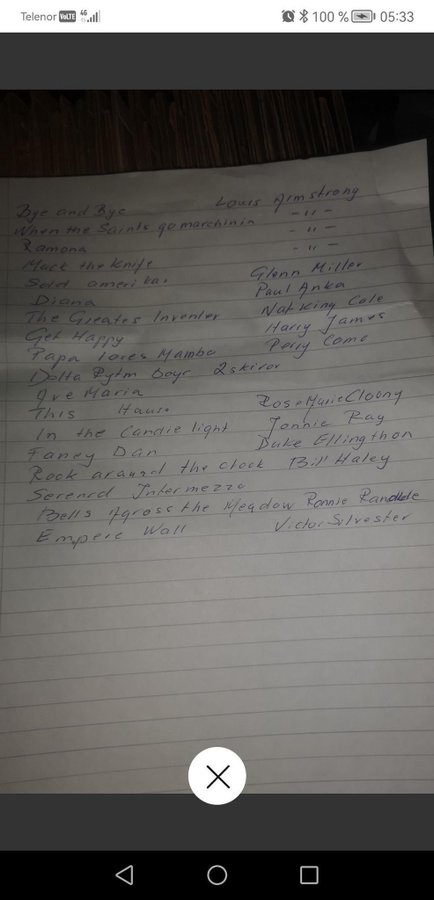 Telenor VoLTE 4G 100 % 05:33
Bye and Bye Louis Armstrong
When the Saints go marchin in - " -
Ramona - " -
Mack the Knife - " -
Sold amerikas Glenn Miller
Diana Paul Anka
The Greates Invenler Nat King Cole
Get Happy Harry James
Papa Loves Mambo Perry Como
Delta Rytm Boys 2 skivor
Ave Maria
This House Rose Marie Cloony
In the Candle light Jonnie Ray
Fancy Dan Duke Ellingthon
Rock around the clock Bill Haley
Serenad Intermezzo
Bells Agross the Meadow Ronnie Randlde
Empere Wall Victor Silvester